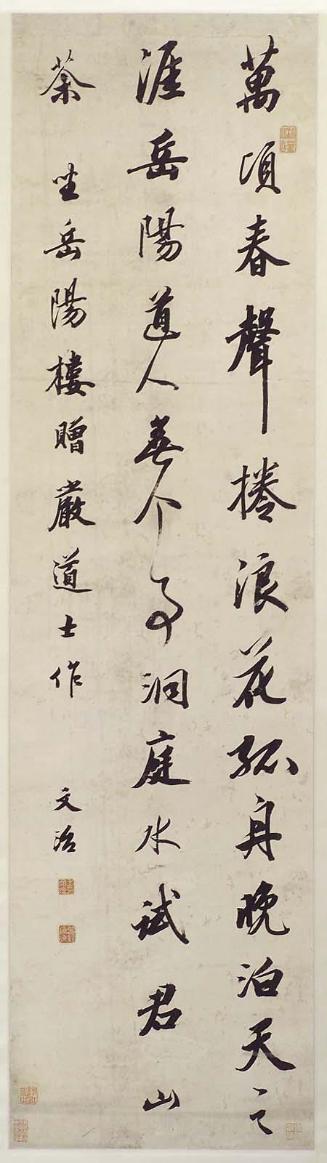 萬頃春聲捲浪花孤舟晚泊天之
涯岳陽道人無个事洞庭水試君山
茶 坐岳陽樓贈嚴道士作 文治